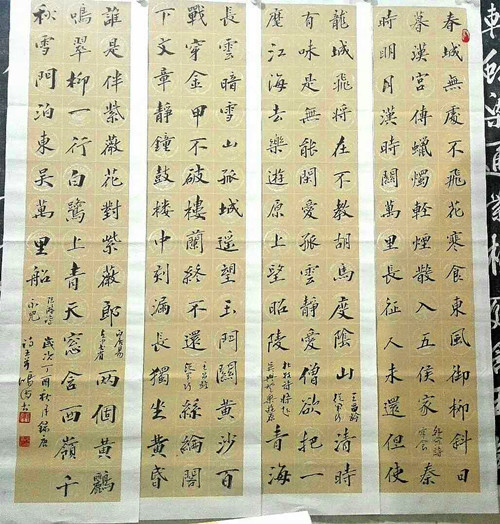 春城無處不飛花寒食東風御柳斜日
暮漢宮傳蠟燭輕煙散入五侯家 秦
時明月漢時關萬里長征人未還但使
龍城飛將在不教胡馬度陰山 王昌齡從軍行 清時
有味是無能閑愛孤雲靜愛僧欲把一
麾江海去樂遊原上望昭陵 青海
長雲暗雪山孤城遥望玉門關黃沙百
戰穿金甲不破樓蘭終不還 王昌齡從軍行 絲綸閣
下文章靜鐘鼓樓中刻漏長獨坐黃昏
誰是伴紫薇花對紫薇郎 白居易 兩個黃鸝
鳴翠柳一行白鷺上青天窓含西嶺千
秋雪門泊東吳萬里船
歲次丁酉秋月錄唐